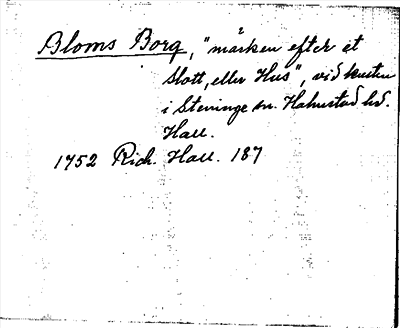 Bloms Borg, "mårken efter et
slott, eller Hus", vid kusten
i Steninge sn. Halmstad hd.
Hall.
1752 Rich. Hall. 187